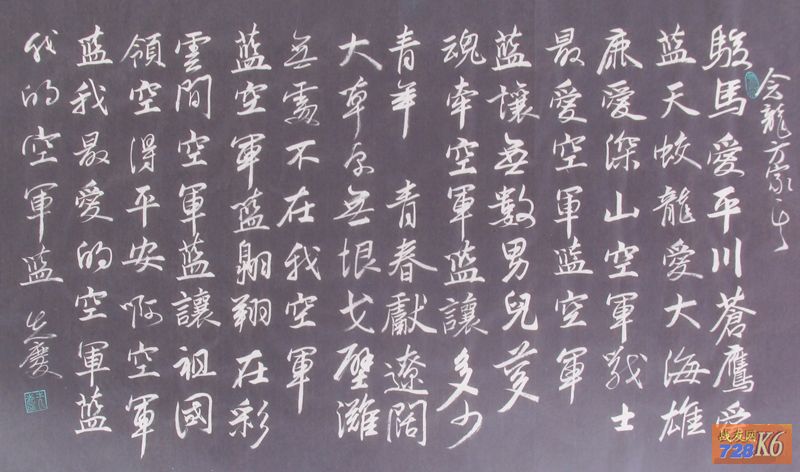 念龍方家正
駿馬愛平川蒼鷹愛
藍天蛟龍愛大海雄
鹿愛深山空軍戰士
最愛空軍藍空軍
藍讓無數男兒夢
魂牽空軍藍讓多少
青年 青春獻遼闊
大草原無垠戈壁灘
無處不在我空軍
藍空軍藍翱翔在彩
雲間空軍藍讓祖國
領空得平安啊空軍
藍我最愛的空軍藍
我的空軍藍
战友网
728 K6